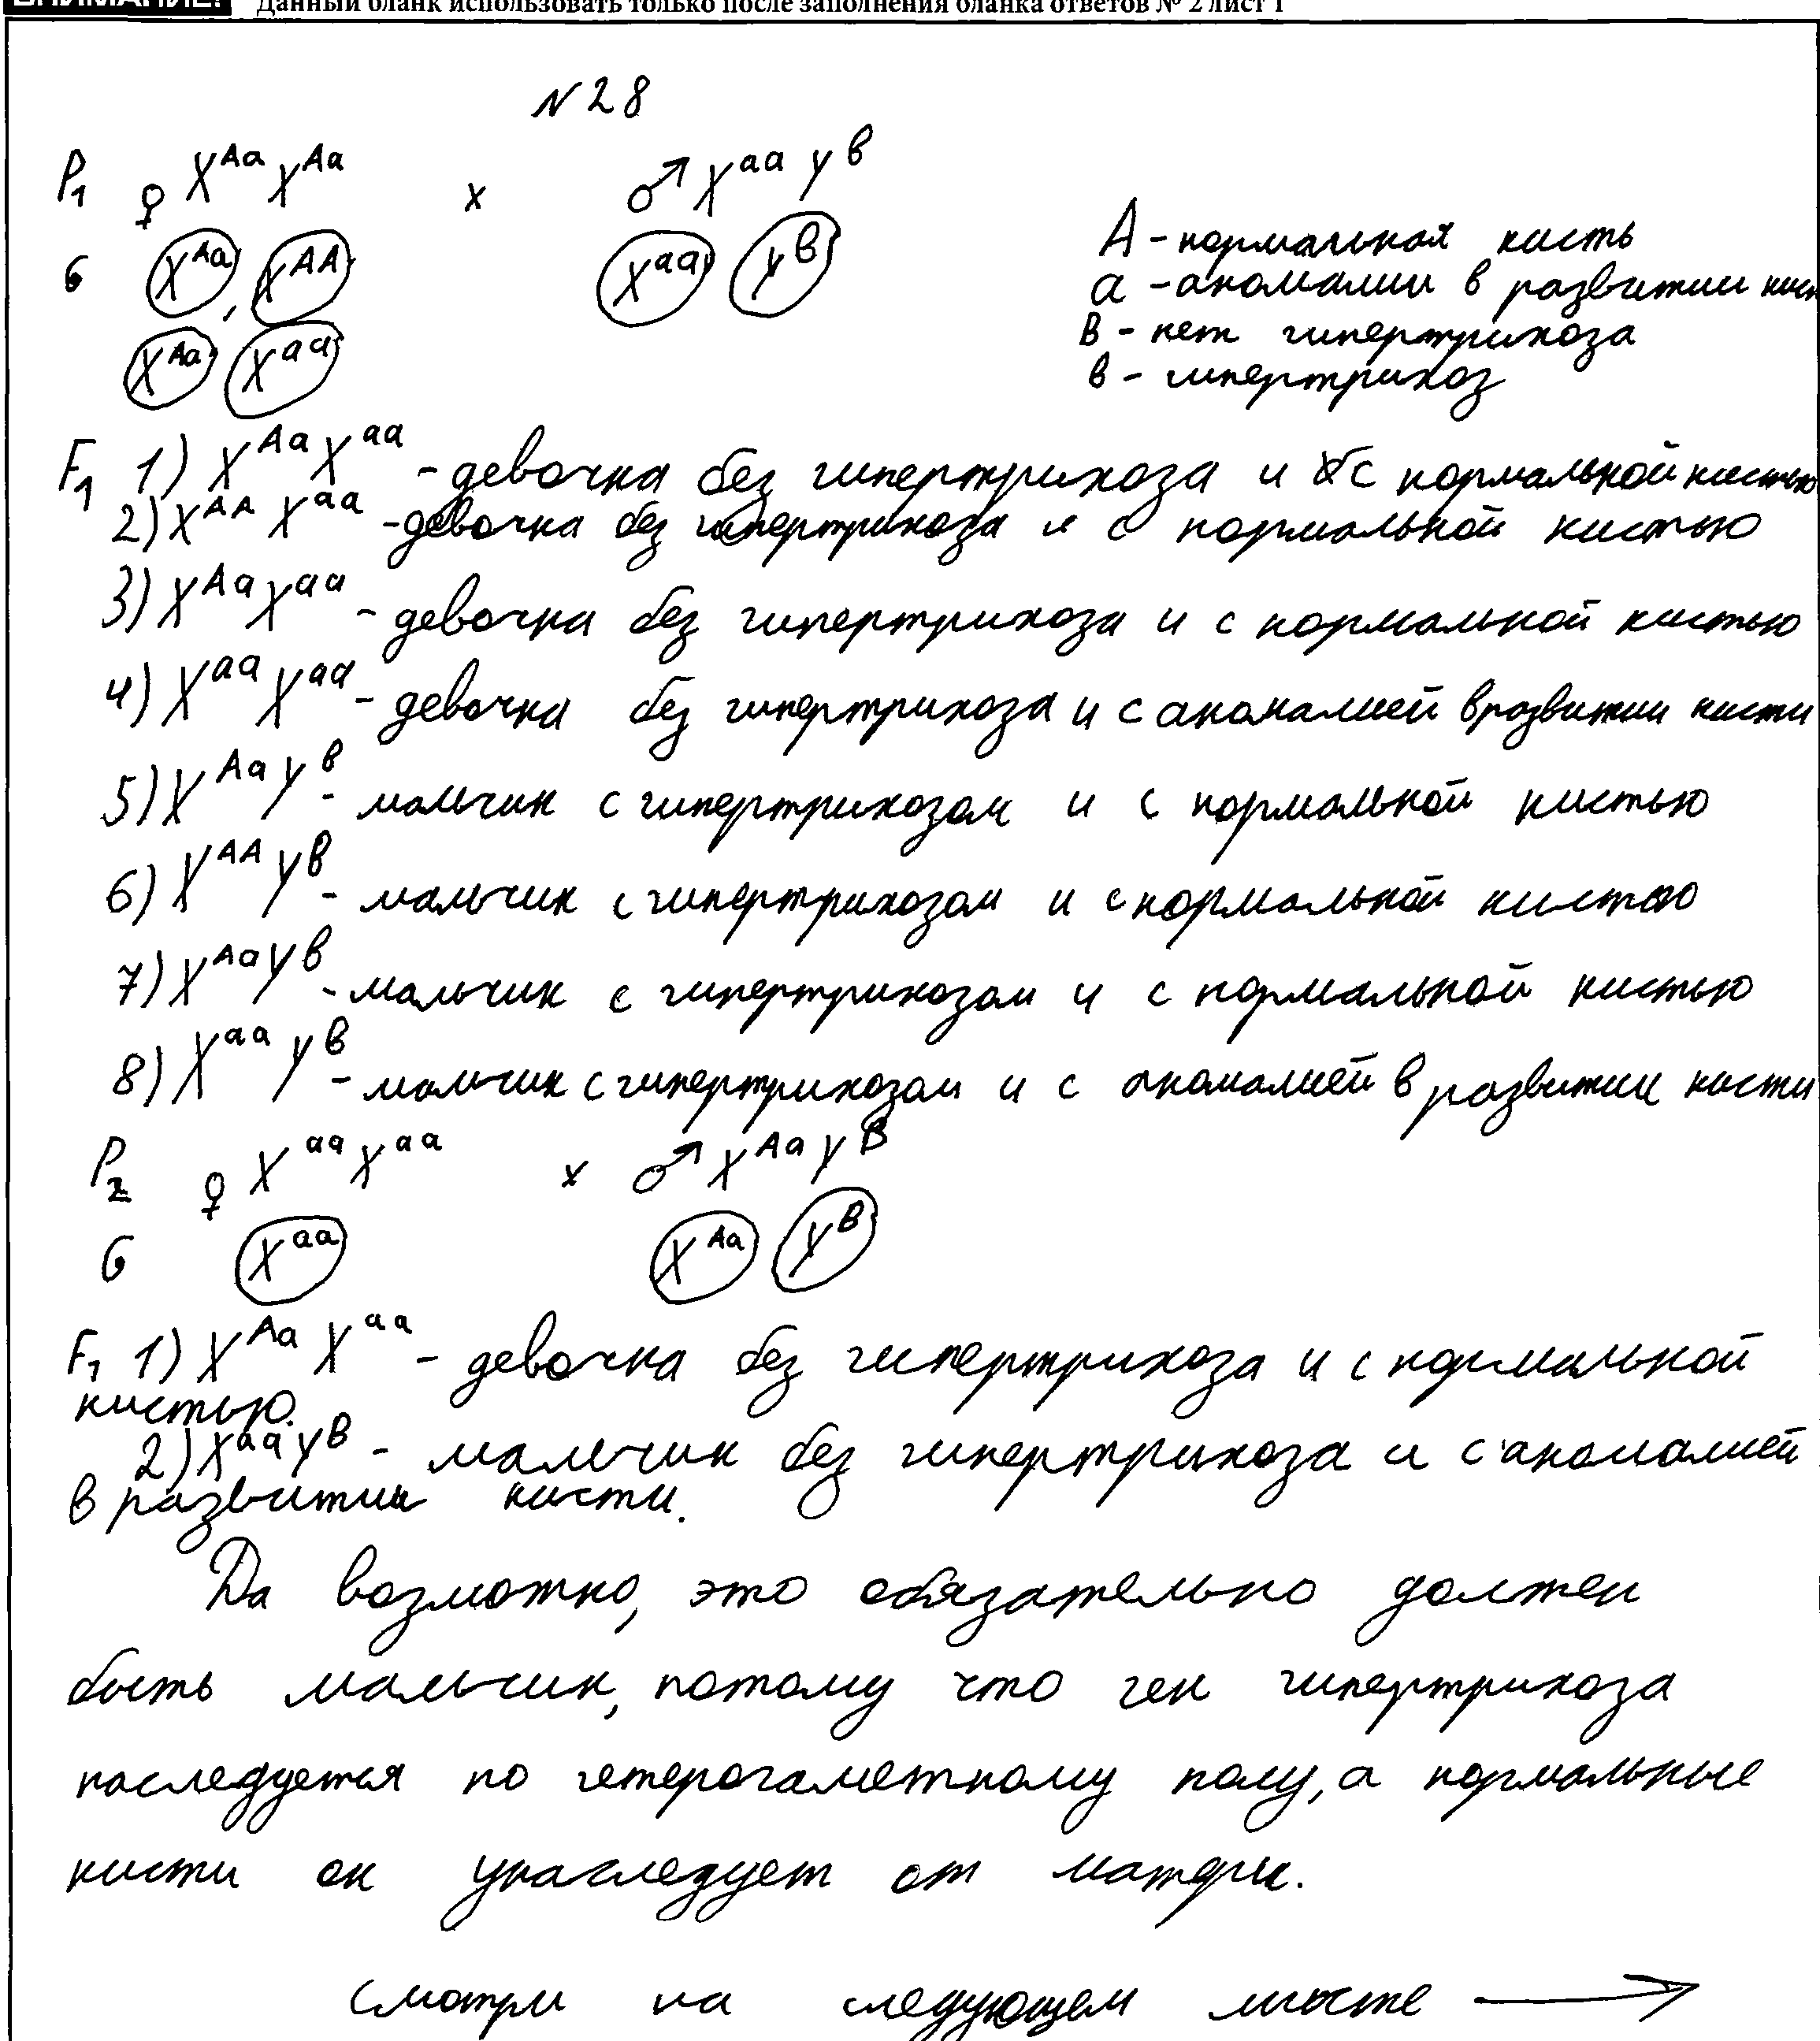 ВНИМАНИЕ! Данный бланк использовать только после заполнения бланка ответов № 2 лист 1
N28
P₁ ♀ X^Aa X^Aa x ♂ X^aa Y^в
G X^Aa, X^AA X^aa Y^в
X^Aa X^aa
A - нормальная кисть
a - аномалии в развитии кист
B - нет гипертрихоза
в - гипертрихоз
F₁ 1) X^Aa X^aa - девочка без гипертрихоза и с нормальной кистью
2) X^AA X^aa - девочка без гипертрихоза и с нормальной кистью
3) X^Aa X^aa - девочка без гипертрихоза и с нормальной кистью
4) X^aa X^aa - девочка без гипертрихоза и с аномалией в развитии кисти
5) X^Aa Y^в - мальчик с гипертрихозом и с нормальной кистью
6) X^AA Y^в - мальчик с гипертрихозом и с нормальной кистью
7) X^Aa Y^в - мальчик с гипертрихозом и с нормальной кистью
8) X^aa Y^в - мальчик с гипертрихозом и с аномалией в развитии кисти
P₂ ♀ X^aa X^aa x ♂ X^Aa Y^B
G X^aa X^Aa Y^B
F₁ 1) X^Aa X^aa - девочка без гипертрихоза и с нормальной
кистью.
2) X^aa Y^B - мальчик без гипертрихоза и с аномалией
в развитии кисти.
Да возможно, это обязательно должен
быть мальчик, потому что ген гипертрихоза
наследуется по гетерогаметному полу, а нормальные
кисти он унаследует от матери.
Смотри на следующем листе →